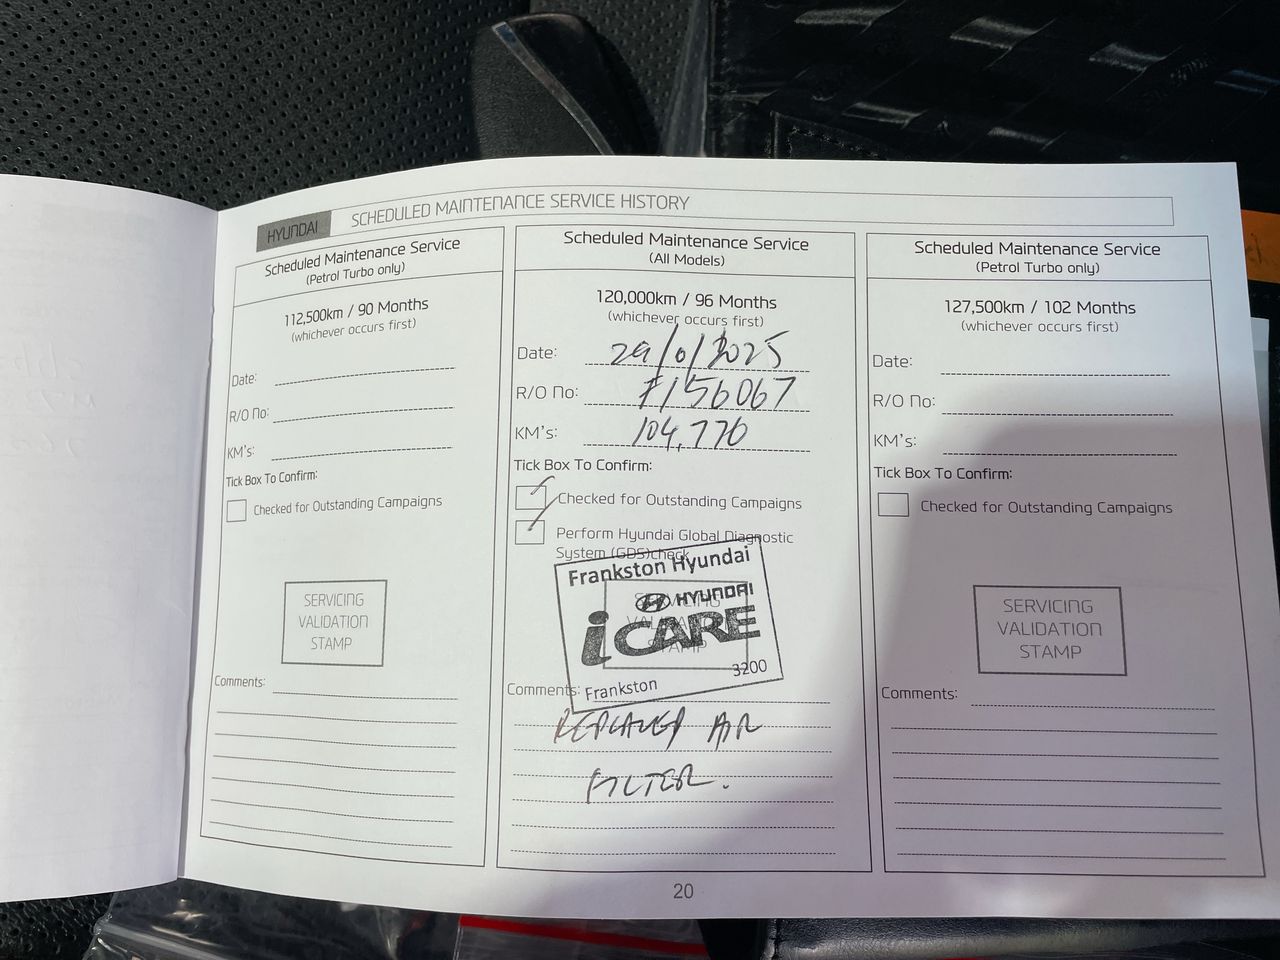 HYUNDAI
SCHEDULED MAINTENANCE SERVICE HISTORY
Scheduled Maintenance Service
(Petrol Turbo only)
112,500km / 90 Months
(whichever occurs first)
Date:
R/O No:
KM's:
Tick Box To Confirm:
Checked for Outstanding Campaigns
SERVICING
VALIDATION
STAMP
Comments:
Scheduled Maintenance Service
(All Models)
120,000km / 96 Months
(whichever occurs first)
Date: 29/0/2025
R/O No: F156067
KM's: 104,770
Tick Box To Confirm:
Checked for Outstanding Campaigns
Perform Hyundai Global Diagnostic
System (GDS)check
Frankston Hyundai
HYUNDAI
iCARE
3200
Frankston
SERVICING
VALIDATION
STAMP
Comments:
REPLACED AIR
FILTER.
Scheduled Maintenance Service
(Petrol Turbo only)
127,500km / 102 Months
(whichever occurs first)
Date:
R/O No:
KM's:
Tick Box To Confirm:
Checked for Outstanding Campaigns
SERVICING
VALIDATION
STAMP
Comments:
20